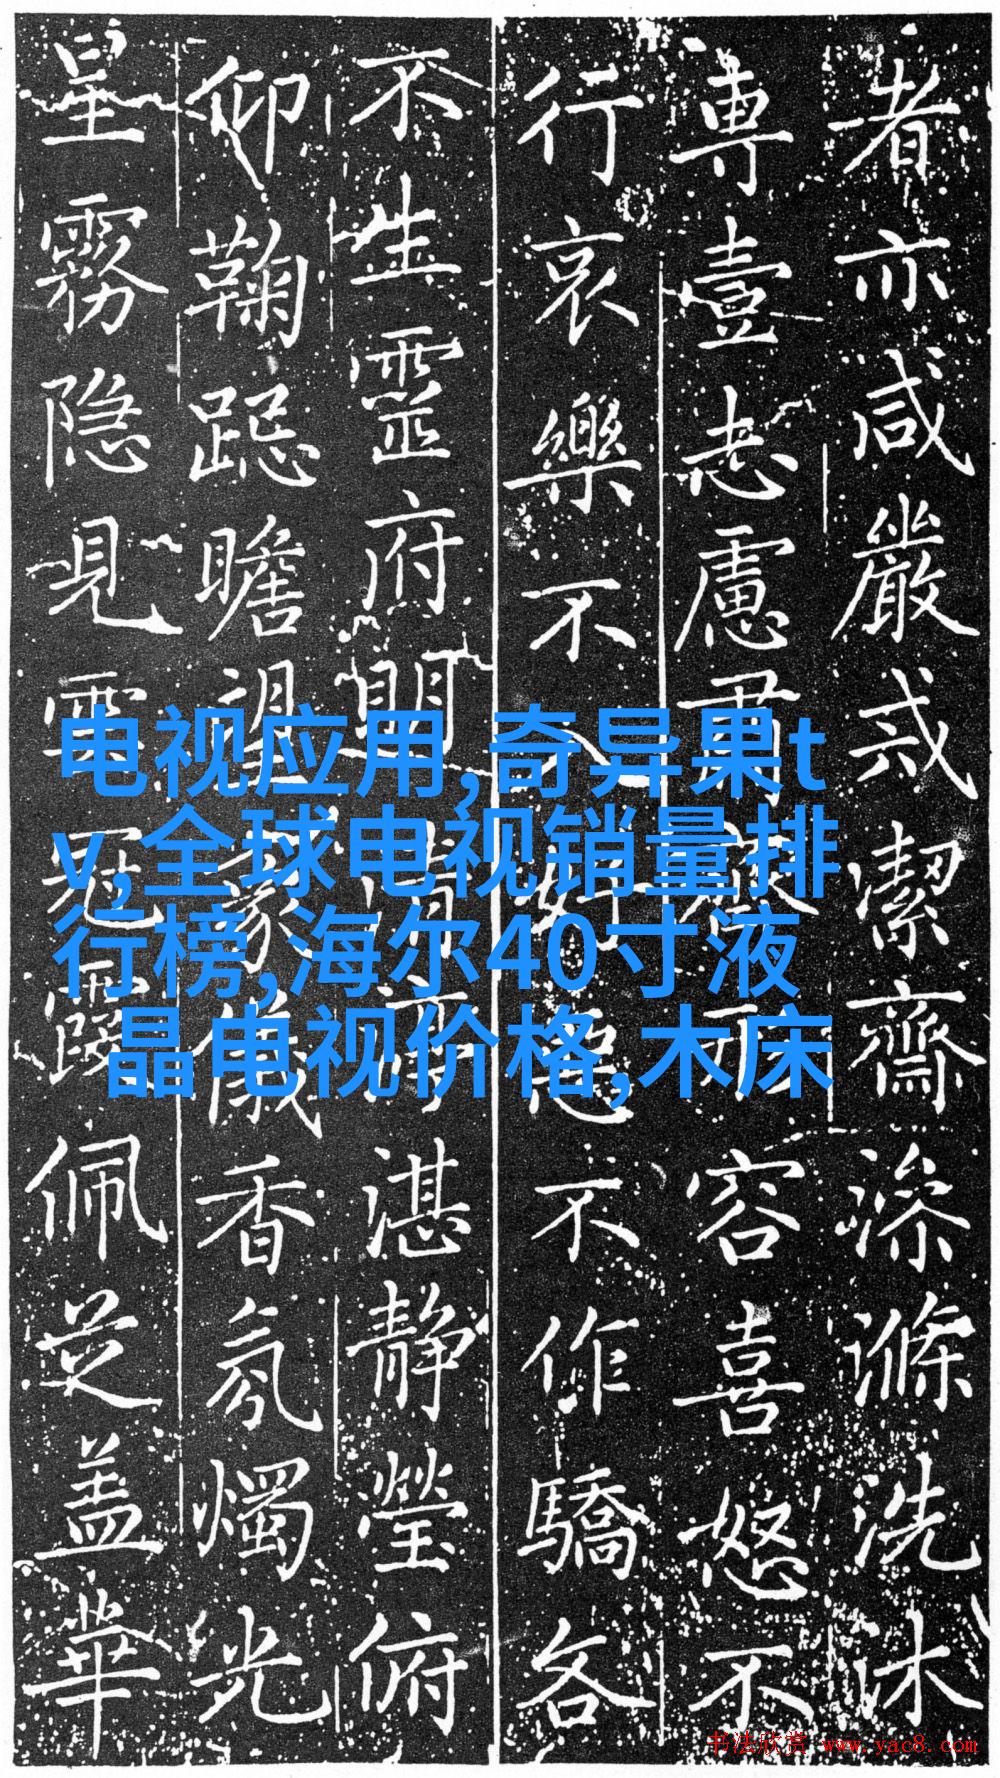 者亦咸嚴戒潔齋滌洗沐
專壹志慮肅容喜怒不
行哀樂不惡不作驕各
不生靈府清湛静瑩俯
仰鞠跽瞻儀香氛燭光
星霧隐見雲冠霞佩芝盖華
电视应用,奇异果t
v,全球电视销量排
行榜,海尔40寸液
晶电视价格,木床
书法欣赏 www.yac8.com